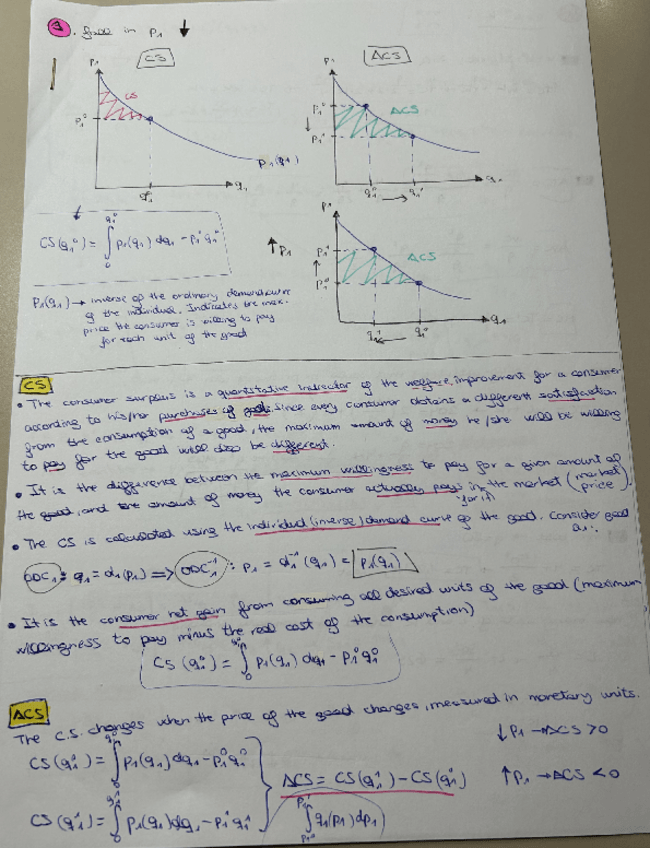 3. fall in P₁ ↓
CS
ΔCS
P₁
CS
P₁⁰
P₁(q₁)
q₁⁰
q₁
P₁
P₁⁰
↓
P₁¹
ΔCS
q₁⁰ → q₁¹
q₁
CS(q₁⁰) = ∫₀^{q₁⁰} P₁(q₁) dq₁ - P₁⁰ q₁⁰
↑P₁
P₁
P₁¹
↑
P₁⁰
ΔCS
q₁¹ ← q₁⁰
q₁
P₁(q₁) → inverse of the ordinary demand curve
of the individual. Indicates the max.
price the consumer is willing to pay
for each unit of the good
CS
• The consumer surplus is a quantitative indicator of the welfare improvement for a consumer
according to his/her purchases of goods. Since every consumer obtains a different satisfaction
from the consumption of a good, the maximum amount of money he/she will be willing
to pay for the good will also be different.
• It is the difference between the maximum willingness to pay for a given amount of
the good, and the amount of money the consumer actually pays in the market (market price)
for it
• The CS is calculated using the individual (inverse) demand curve of the good. Consider good
q₁:
ODC₁: q₁ = d₁(P₁) ⟹ ODC₁⁻¹: P₁ = d₁⁻¹(q₁) = P₁(q₁)
• It is the consumer net gain from consuming all desired units of the good (maximum
willingness to pay minus the real cost of the consumption)
CS(q₁⁰) = ∫₀^{q₁⁰} P₁(q₁) dq₁ - P₁⁰ q₁⁰
ΔCS
The C.S. changes when the price of the good changes, measured in monetary units.
CS(q₁⁰) = ∫₀^{q₁⁰} P₁(q₁) dq₁ - P₁⁰ q₁⁰
↓P₁ → ΔCS > 0
ΔCS = CS(q₁¹) - CS(q₁⁰)
↑P₁ → ΔCS < 0
CS(q₁¹) = ∫₀^{q₁¹} P₁(q₁) dq₁ - P₁¹ q₁¹
∫ q₁(P₁) dP₁